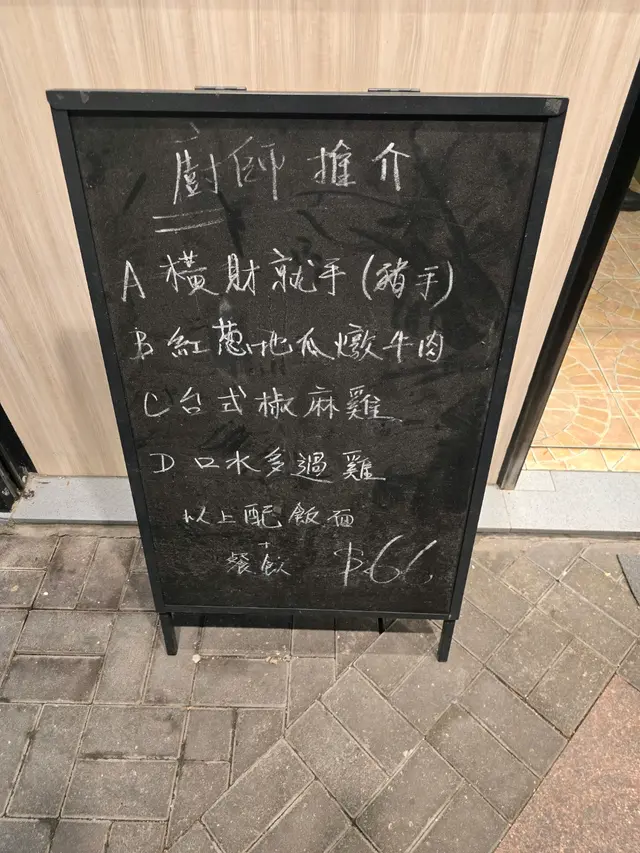 廚師推介
A 橫財就手(豬手)
B 紅蔥地瓜燉牛肉
C 台式椒麻雞
D 口水多過雞
以上配飯面
+
餐飲 $66